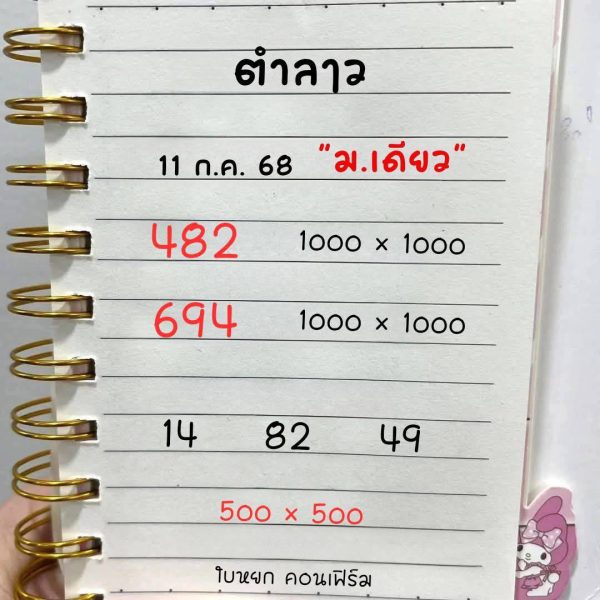 ตำลาว
11 ก.ค. 68 "ม.เดียว"
482 1000 × 1000
694 1000 × 1000
14 82 49
500 × 500
ใบหยก คอนเฟิร์ม